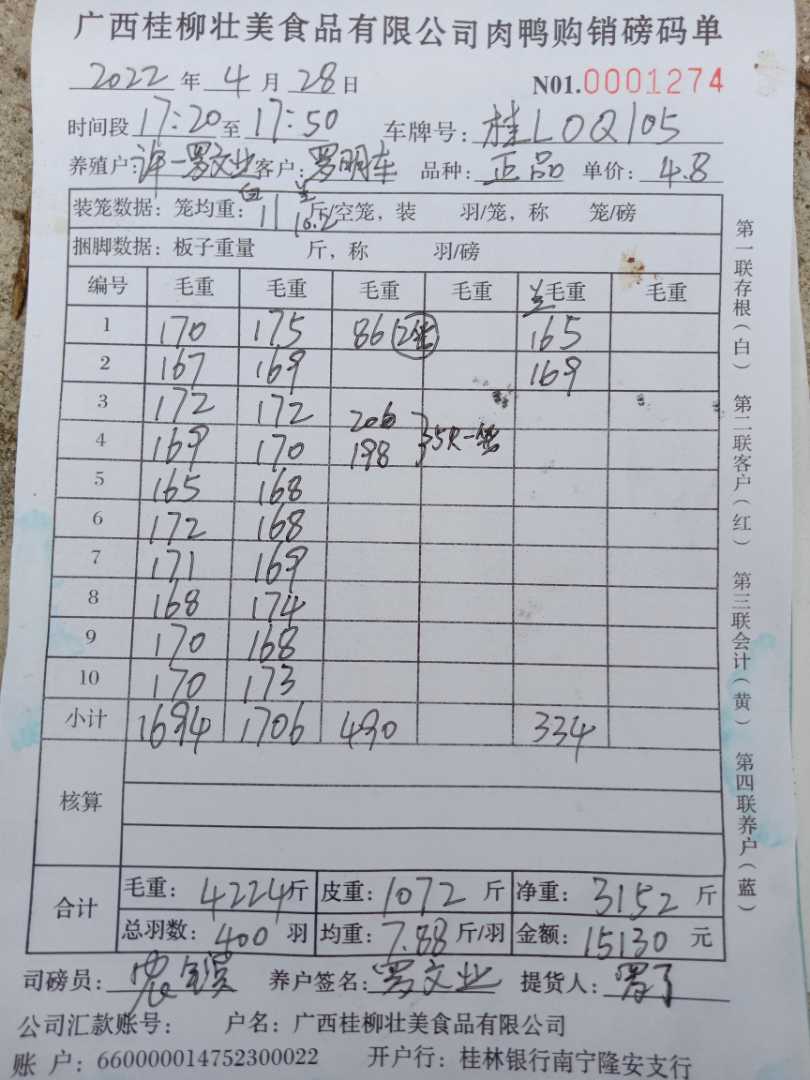 广西桂柳壮美食品有限公司肉鸭购销磅码单
2022 年 4 月 28 日 N01.0001274
时间段 17:20 至 17:50 车牌号: 桂L0Q105
养殖户: 罗文业 客户: 罗明车 品种: 正品 单价: 4.8
装笼数据: 笼均重: 11 10.2 斤/空笼, 装 羽/笼, 称 笼/磅
捆脚数据: 板子重量 斤, 称 羽/磅
编号 毛重 毛重 毛重 毛重 毛重 毛重
1 170 175 86 165
2 167 169 169
3 172 172 206
4 169 170 198
5 165 168
6 172 168
7 171 169
8 168 174
9 170 168
10 170 173
小计 1694 1706 490 334
核算
合计 毛重: 4224 斤 皮重: 1072 斤 净重: 3152 斤
总羽数: 400 羽 均重: 7.88 斤/羽 金额: 15130 元
司磅员: 养户签名: 罗文业 提货人:
公司汇款账号: 户名: 广西桂柳壮美食品有限公司
账 户: 660000014752300022 开户行: 桂林银行南宁隆安支行
第一联存根(白) 第二联客户(红) 第三联会计(黄) 第四联养户(蓝)